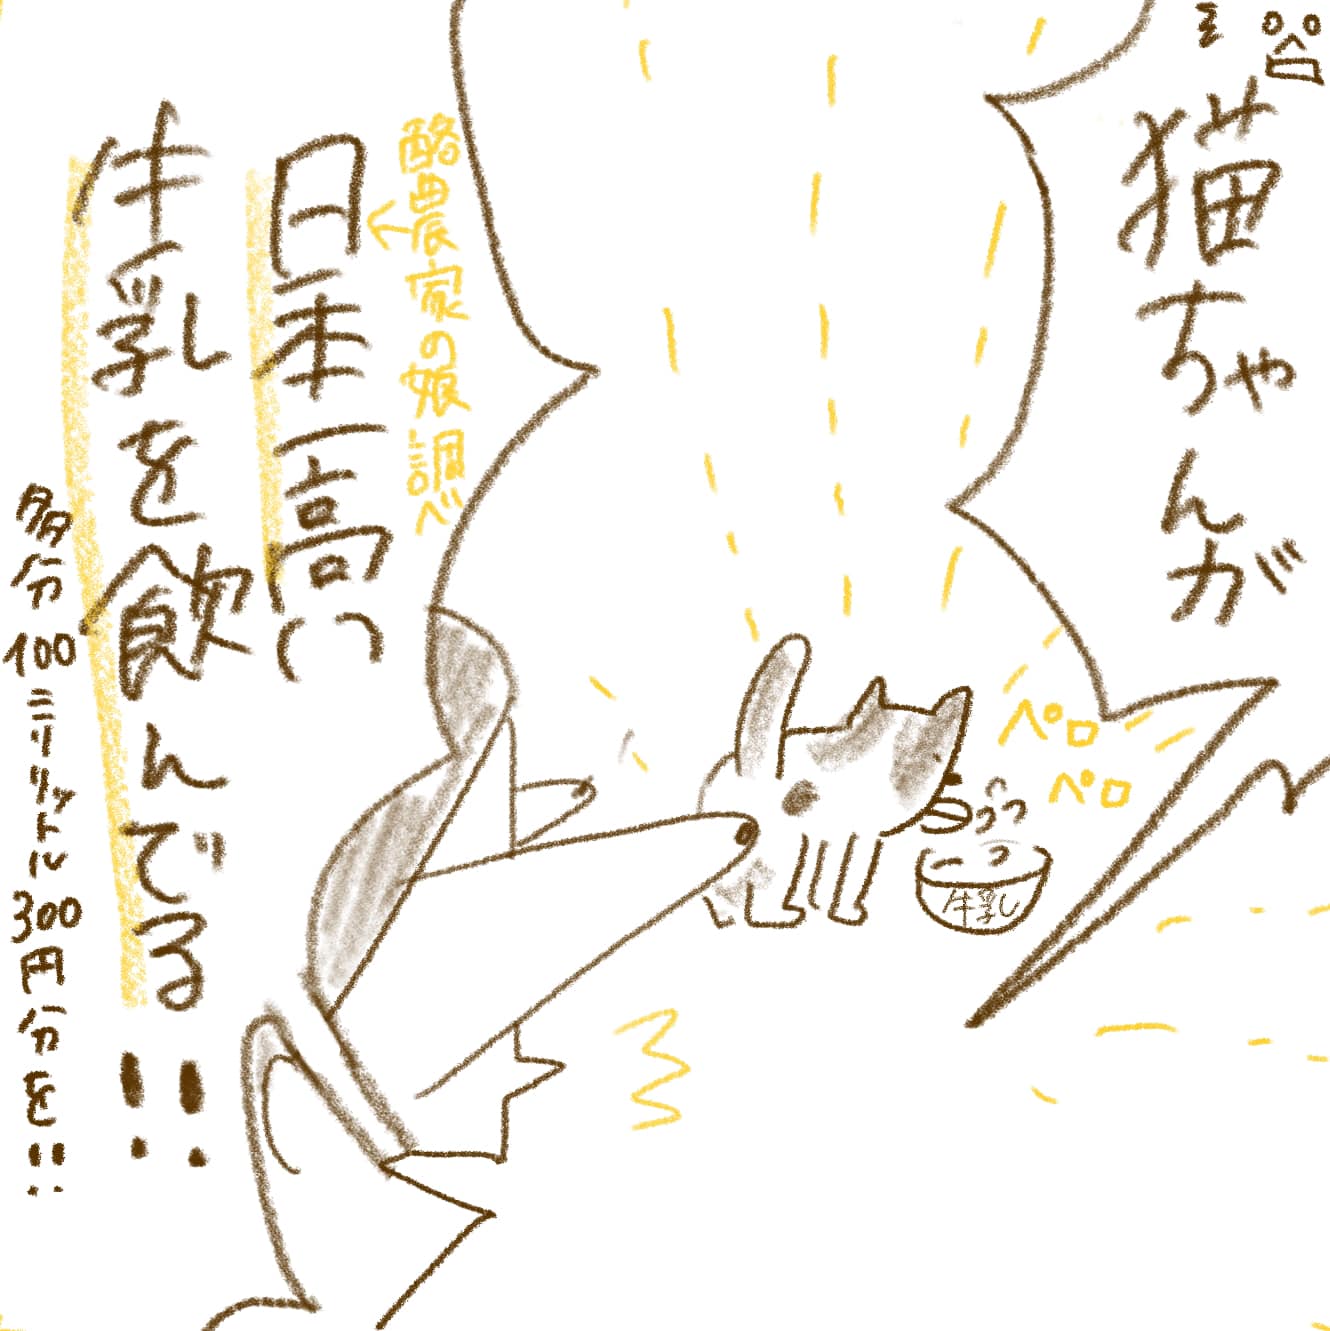 猫ちゃんが
ペロ
ペロ
牛乳
酪農家の娘調べ
日本一高い
牛乳を飲んでる!!
多分100ミリリットル300円分を!!